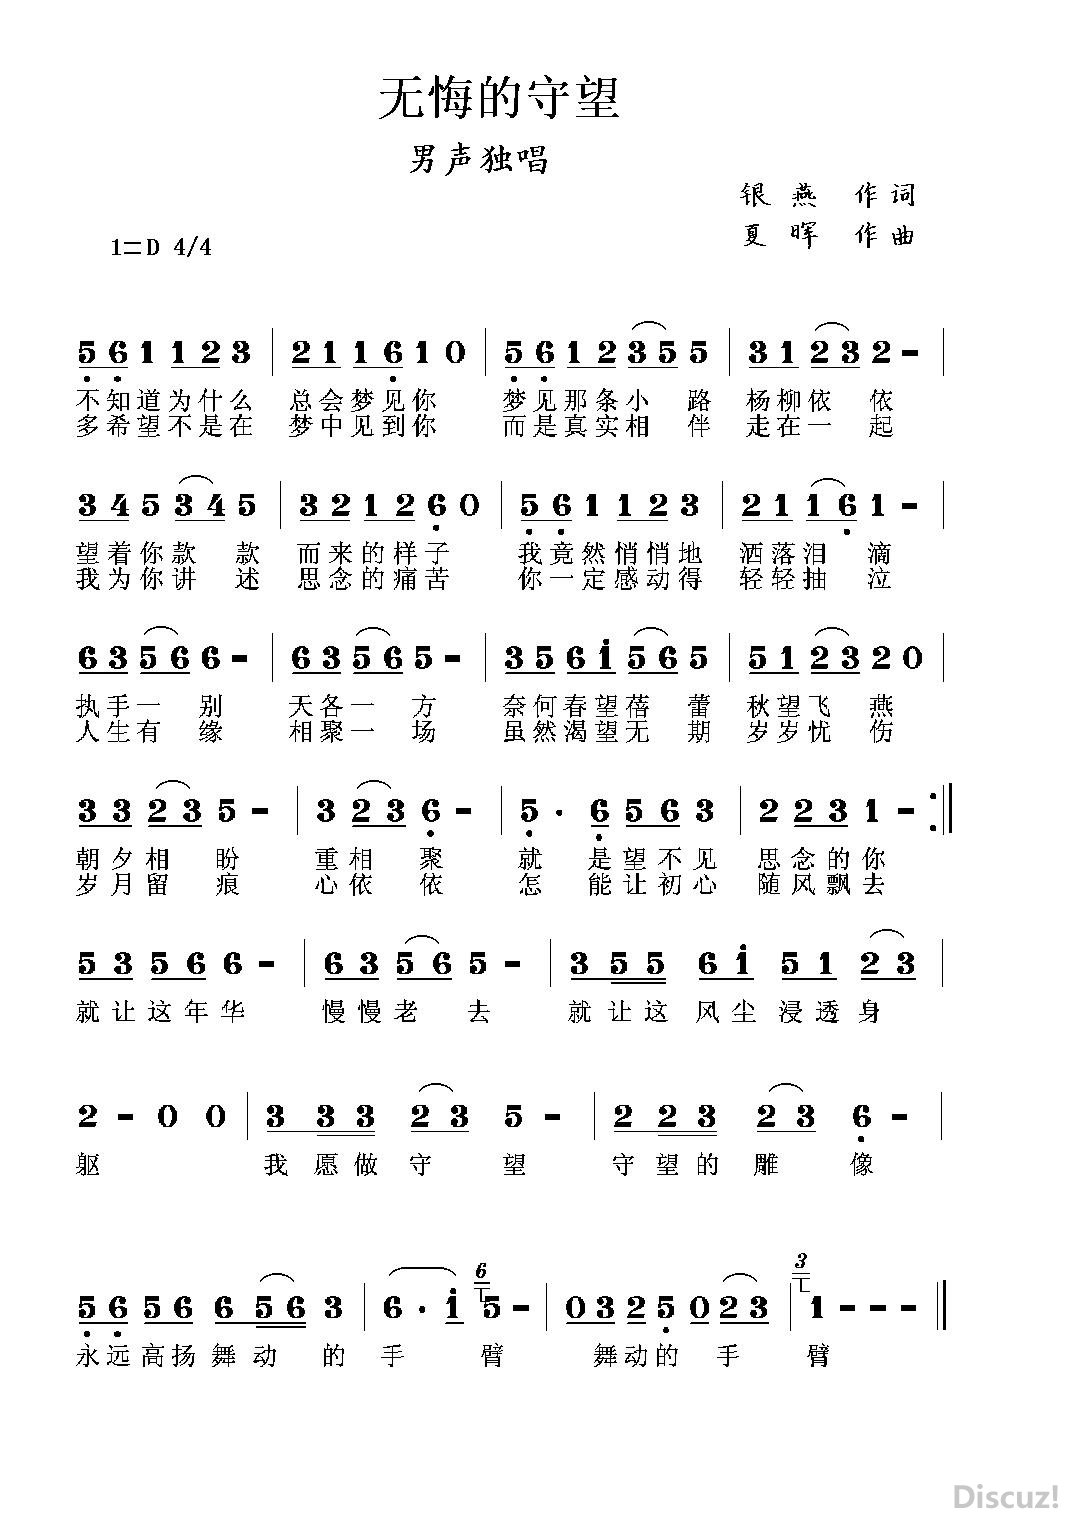 无悔的守望
男声独唱
银燕 作词
1=D 4/4
夏晖 作曲
5 6 1 1 2 3 | 2 1 1 6 1 0 | 5 6 1 2 3 5 5 | 3 1 2 3 2 - |
不知道为什么 总会梦见你 梦见那条小路 杨柳依依
多希望不是在 梦中见到你 而是真实相伴 走在一起
3 4 5 3 4 5 | 3 2 1 2 6 0 | 5 6 1 1 2 3 | 2 1 1 6 1 - |
望着你款款 而来的样子 我竟然悄悄地 洒落泪滴
我为你讲述 思念的痛苦 你一定感动得 轻轻抽泣
6 3 5 6 6 - | 6 3 5 6 5 - | 3 5 6 i 5 6 5 | 5 1 2 3 2 0 |
执手一别 天各一方 奈何春望蓓蕾 秋望飞燕
人生有缘 相聚一场 虽然渴望无期 岁岁忧伤
3 3 2 3 5 - | 3 2 3 6 - | 5 · 6 5 6 3 | 2 2 3 1 - :|
朝夕相盼 重相聚 就是望不见 思念的你
岁月留痕 心依依 怎能让初心 随风飘去
5 3 5 6 6 - | 6 3 5 6 5 - | 3 5 5 6 i 5 1 2 3 |
就让这年华 慢慢老去 就让这风尘浸透身
2 - 0 0 | 3 3 3 2 3 5 - | 2 2 3 2 3 6 - |
躯 我愿做守望 守望的雕像
5 6 5 6 6 5 6 3 | 6 · i 6 5 - | 0 3 2 5 0 2 3 | 3 1 - - - ||
永远高扬舞动的手臂 舞动的手臂
Discuz!